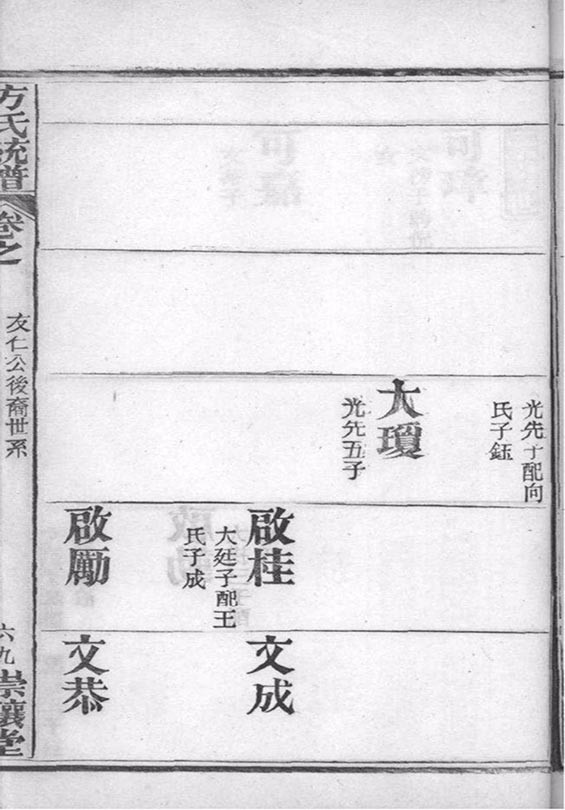 光先子配向
氏子鈺
大瓊
光先五子
啟桂
大廷子配王
氏子成
啟勵
文成
文恭
方氏統譜
卷之
友仁公後裔世系
六九
崇讓堂